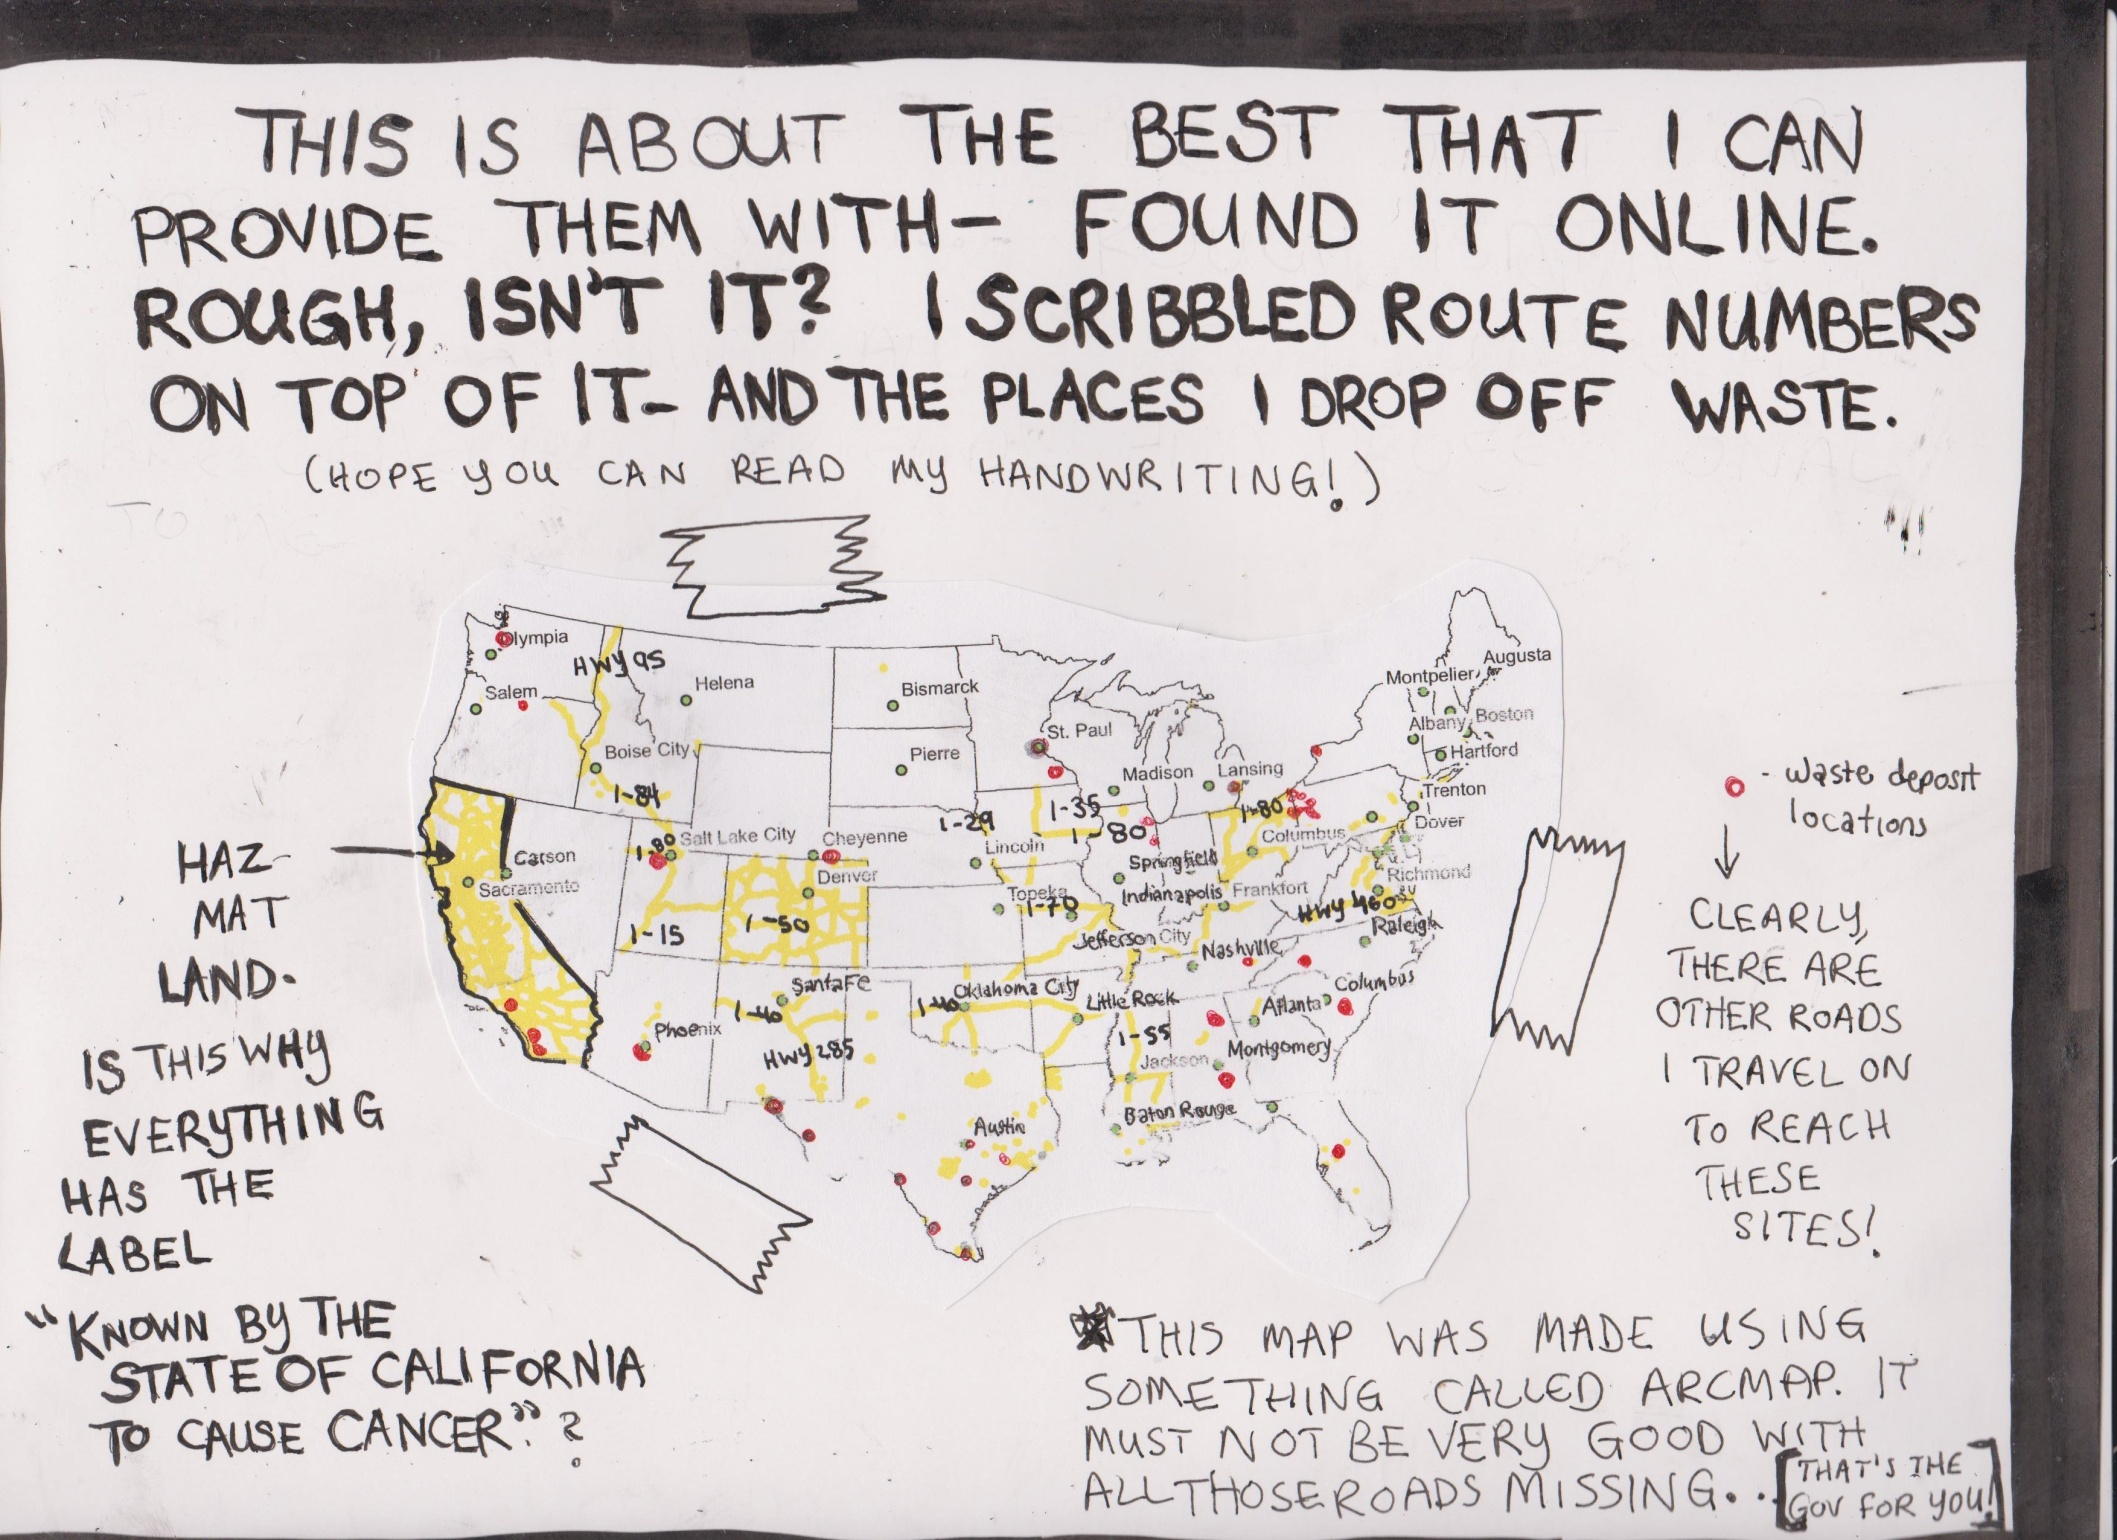 THIS IS ABOUT THE BEST THAT I CAN
PROVIDE THEM WITH- FOUND IT ONLINE.
ROUGH, ISN'T IT? I SCRIBBLED ROUTE NUMBERS
ON TOP OF IT- AND THE PLACES I DROP OFF WASTE.
(HOPE YOU CAN READ MY HANDWRITING!)
Olympia
HWY 95
Salem
Helena
Bismarck
Montpelier
Augusta
Boise City
Pierre
St. Paul
Albany
Boston
Hartford
Madison
Lansing
Trenton
I-84
I-29
I-35
I-80
I-80
Dover
I-80
Salt Lake City
Cheyenne
Lincoln
Columbus
Carson
Sacramento
Denver
Springfield
Indianapolis
Frankfort
Richmond
Topeka
I-70
HWY 460
I-15
I-50
Jefferson City
Nashville
Raleigh
Santa Fe
Oklahoma City
Little Rock
Atlanta
Columbus
I-40
I-40
Phoenix
HWY 285
I-55
Jackson
Montgomery
Austin
Baton Rouge
HAZ-
MAT
LAND.
IS THIS WHY
EVERYTHING
HAS THE
LABEL
"KNOWN BY THE
STATE OF CALIFORNIA
TO CAUSE CANCER."?
- waste deposit
locations
CLEARLY,
THERE ARE
OTHER ROADS
I TRAVEL ON
TO REACH
THESE
SITES!
*THIS MAP WAS MADE USING
SOMETHING CALLED ARCMAP. IT
MUST NOT BE VERY GOOD WITH
ALL THOSE ROADS MISSING...
[THAT'S THE
GOV FOR YOU!]